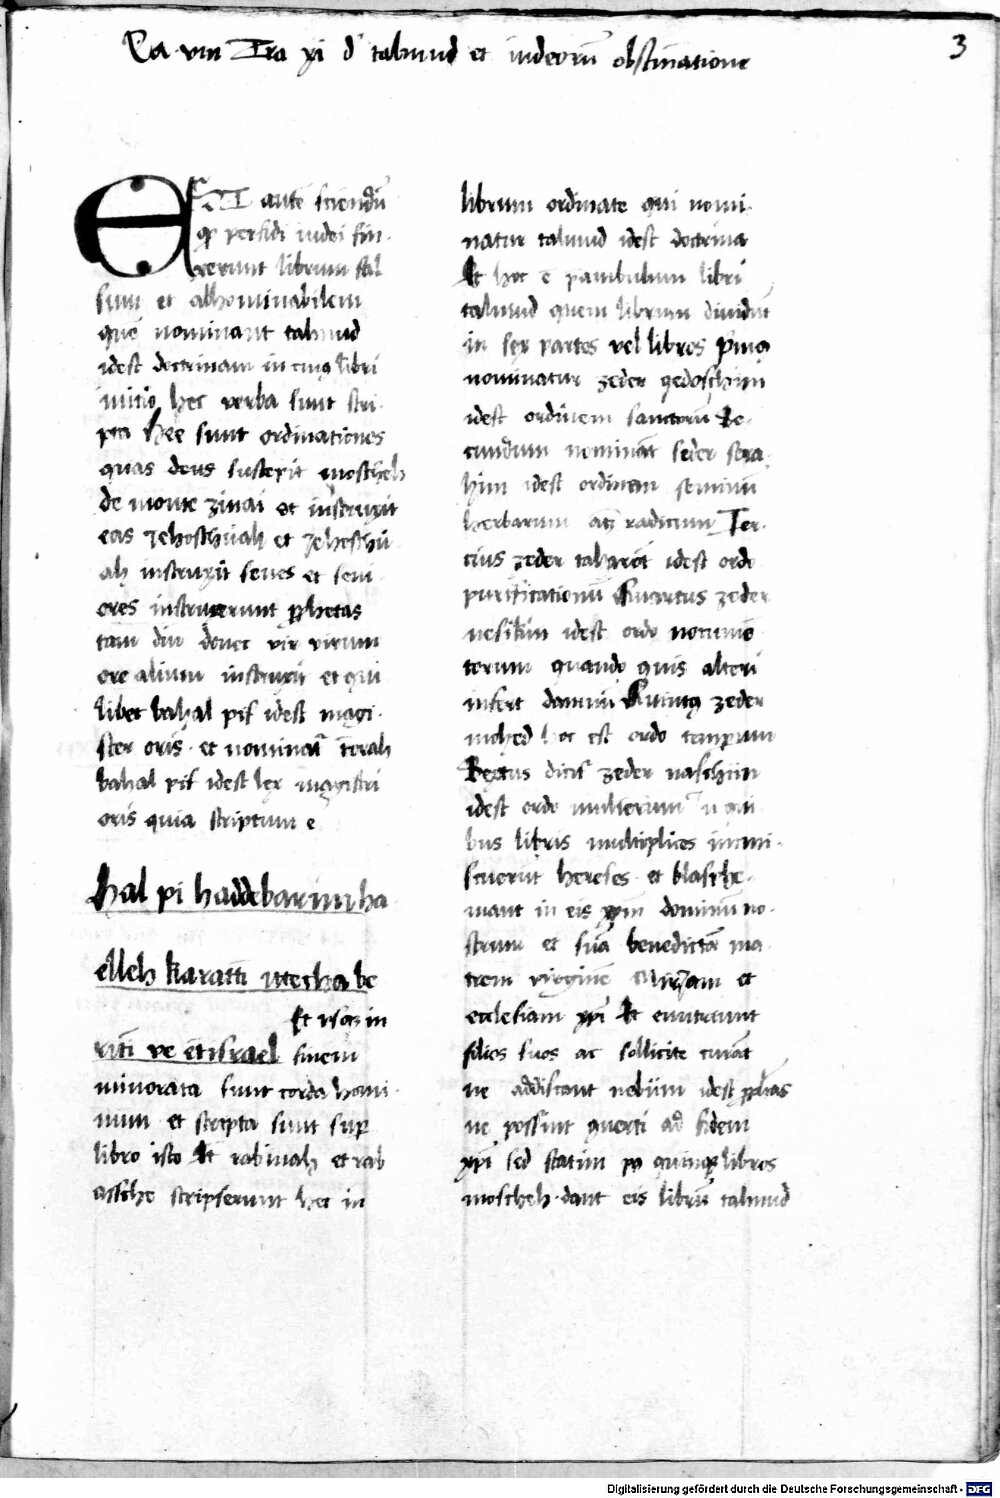 Ca viii Tra xi d' talmud et iudeorū obstinatione
3
EST autē sciendū
qƺ perfidi iudei fin-
xerunt librum fal
sum et abhominabilem
quē nominant talmud
idest doctrinam in cuiꝰ libri
initio hec verba sunt scri-
pta Hee sunt ordinationes
quas deus suscepit moscheh
de monte zinai et instruxit
eas Jehoschuah et Jehoschu
ah instruxit senes et seni
ores instruxerunt ꝓphetas
tam diu donec vir virum
ore alium instruxit et qui
libet bahal pif idest magi-
ster oris et nominat̄ torah
bahal pif idest lex magistri
oris quia scriptum e
Hal pi haddebarim ha
elleh karatti itecha be
Et vsqƺ in
riti ve et israel finem
minorata sunt corda homi-
num et scripta sunt sup
libro isto Et rabinah et rab
assche scripserunt hec in
librum ordinate qui nomi-
natur talmud idest doctrina
Et hec ē pambulum libri
talmud quem librum diuidūt
in sex partes vel libros Pͥmꝰ
nominatur zeder qedoschim
idest ordinem sanctorū Se-
cundum nominant seder sera
him idest ordinem seminū
herbarum atqƺ radicum Ter-
cius zeder taharot idest ordo
purificationū Quartus zeder
nesikin idest ordo nocumē
torum quando quis alteri
infert damnū Quintꝰ zeder
mohed hoc est ordo temporum
Sextus dicit̄ zeder naschim
idest ordo mulierum in qui
bus libris multiplices inmi-
scuerūt hereses et blasphe-
mant in eis xpm dominum no-
strum et suā benedictā ma-
trem virginē Miriam et
ecclesiam xpi Et enutriunt
filios suos ac sollicite curāt
ne addiscant nebiim idest ꝓphetas
ne possint ꝯuerti ad fidem
xpi sed statim pꝰ quinqƺ libros
moscheh dant eis librū talmud
Digitalisierung gefördert durch die Deutsche Forschungsgemeinschaft - DFG